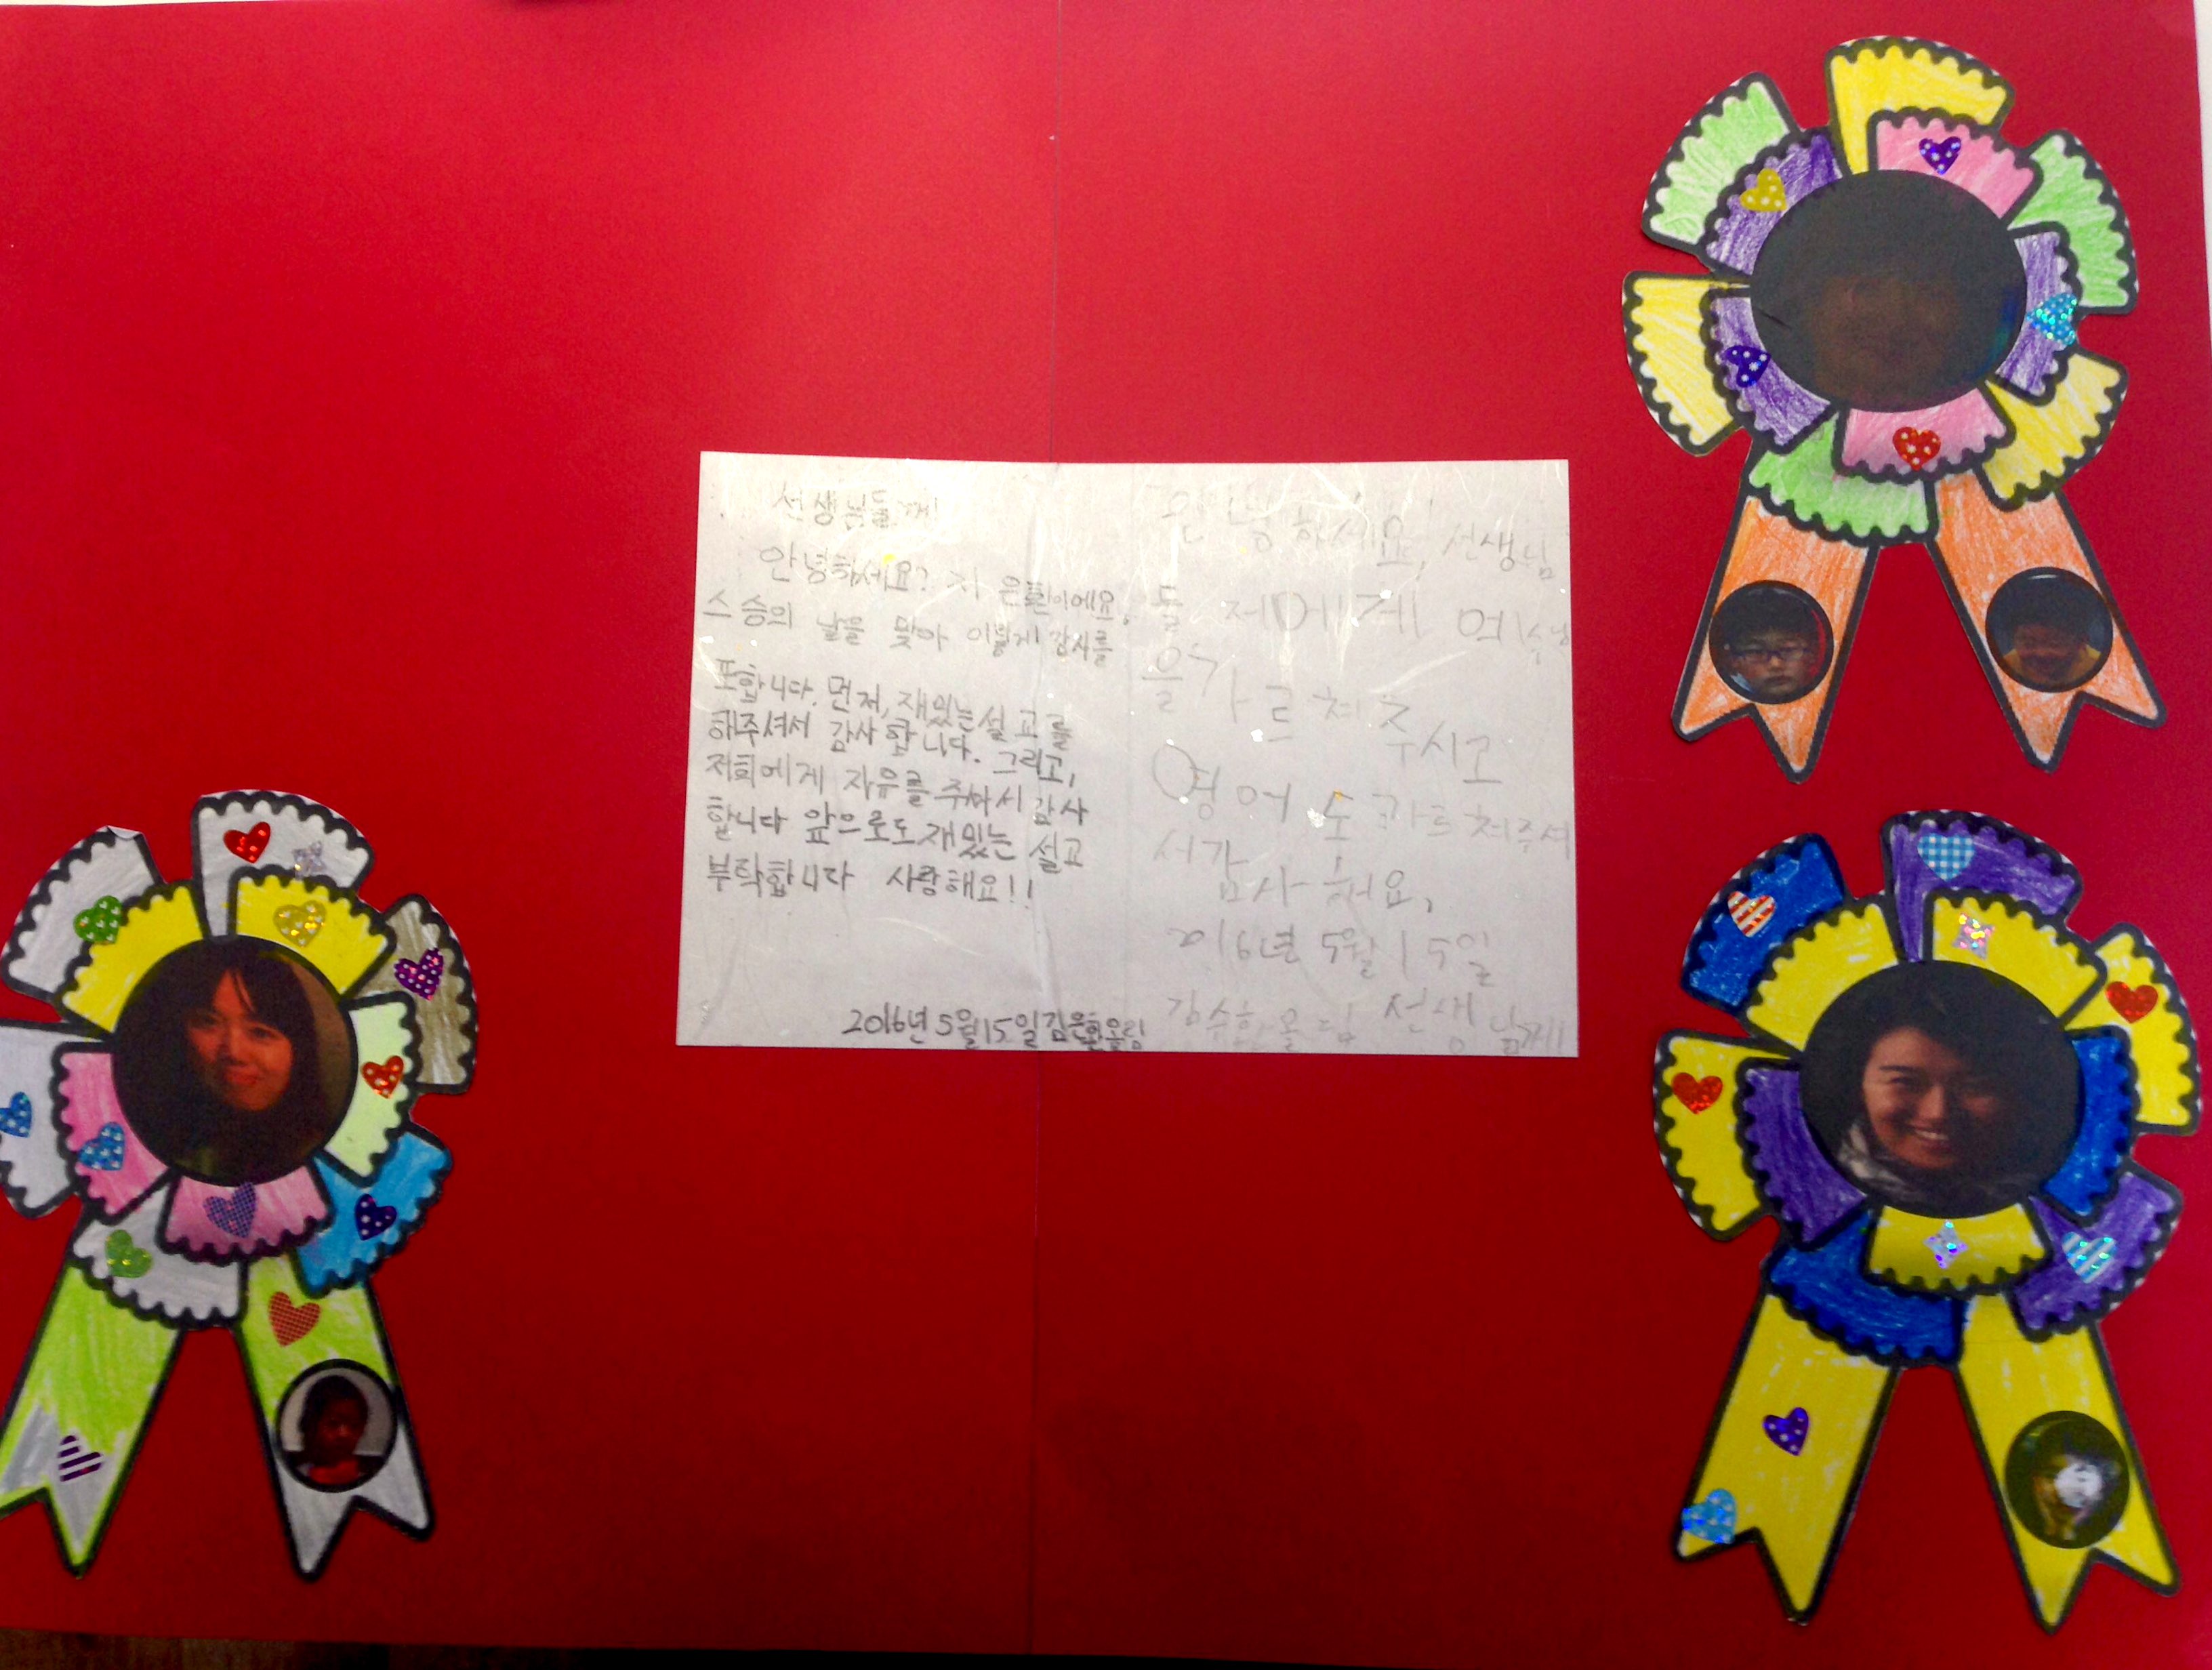 선생님들께
안녕하세요? 저 은환이에요.
스승의 날을 맞아 이렇게 감사를
표합니다. 먼저, 재밌는 설교를
해주셔서 감사합니다. 그리고,
저희에게 자유를 주셔서 감사
합니다 앞으로도 재밌는 설교
부탁합니다 사랑해요!!
2016년 5월 15일 김은환올림
안녕하세요! 선생님
들 저에게
을 가르쳐 주시고
영어도 가르쳐주셔
서 감사해요,
2016년 5월 15일
올림 선생님께